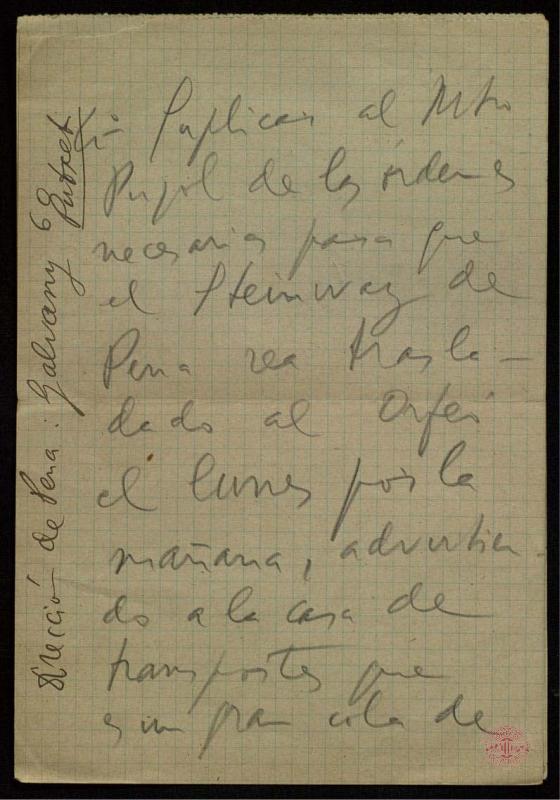 1º Suplicar al Mtro
Pujol de las órdenes
necesarias para que
el Steinway de
Pena sea trasla-
dado al Orfeó
el lunes por la
mañana, advirtien-
do a la casa de
transportes que
es un gran cola de
Dirección de Pena: Galvany 6
Putxet